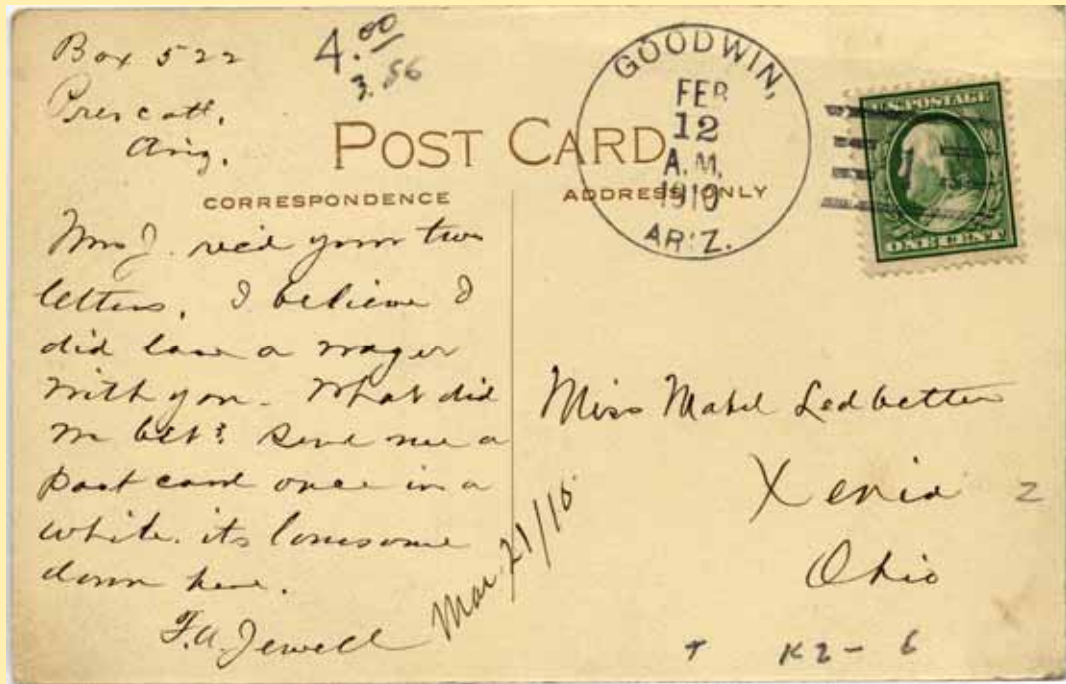 Box 522
Prescott,
Ariz.
4.00
3.56
POST CARD
CORRESPONDENCE
ADDRESS ONLY
GOODWIN,
FEB
12
A.M.
1910
ARIZ.
U.S. POSTAGE
ONE CENT
Mrs J. rec'd your two
letters, I believe I
did lose a wager
with you. What did
we bet? Send me a
post card once in a
while. its lonesome
down here.
F.A. Jewell
Mar. 21/10.
Miss Mabel Ledbetter
Xenia
Z
Ohio
K2-6